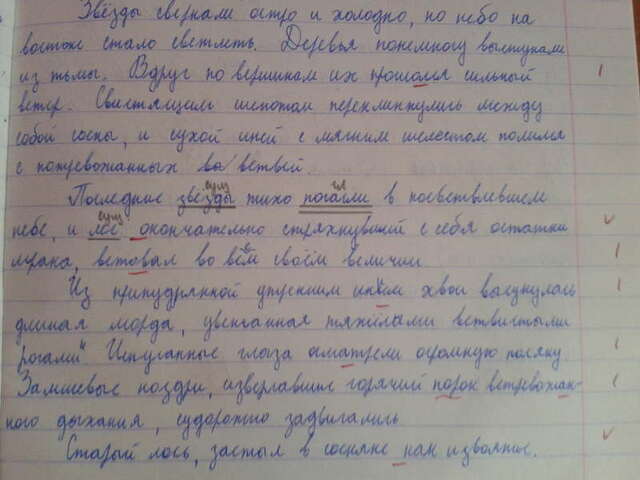 Звёзды сверкали остро и холодно, но небо на
востоке стало светлеть. Деревья понемногу выступали
из тьмы. Вдруг по вершинам их прошолся сильный
ветер. Свистящим шепотом перекликнулись между
собой сосны, и сухой иней с мягким шелестом полился
с потревожанных ветвей.
Последние звёзды тихо погасли в посветлевшем
небе, и лос окончательно стряхнувший с себя остатки
мрака, вставал во всём своём величии.
Из припудрянной утренним инеем хвои высунулась
длиная морда, увенчанная тяжёлыми ветвистыми
рогами. Испуганные глаза осматрели огромную поляну.
Замшевые ноздри, извергавшие горячий парок встревожан-
ного дыхания, судорожно задвигались
Старый лось, застыл в сосняке как изваяние.